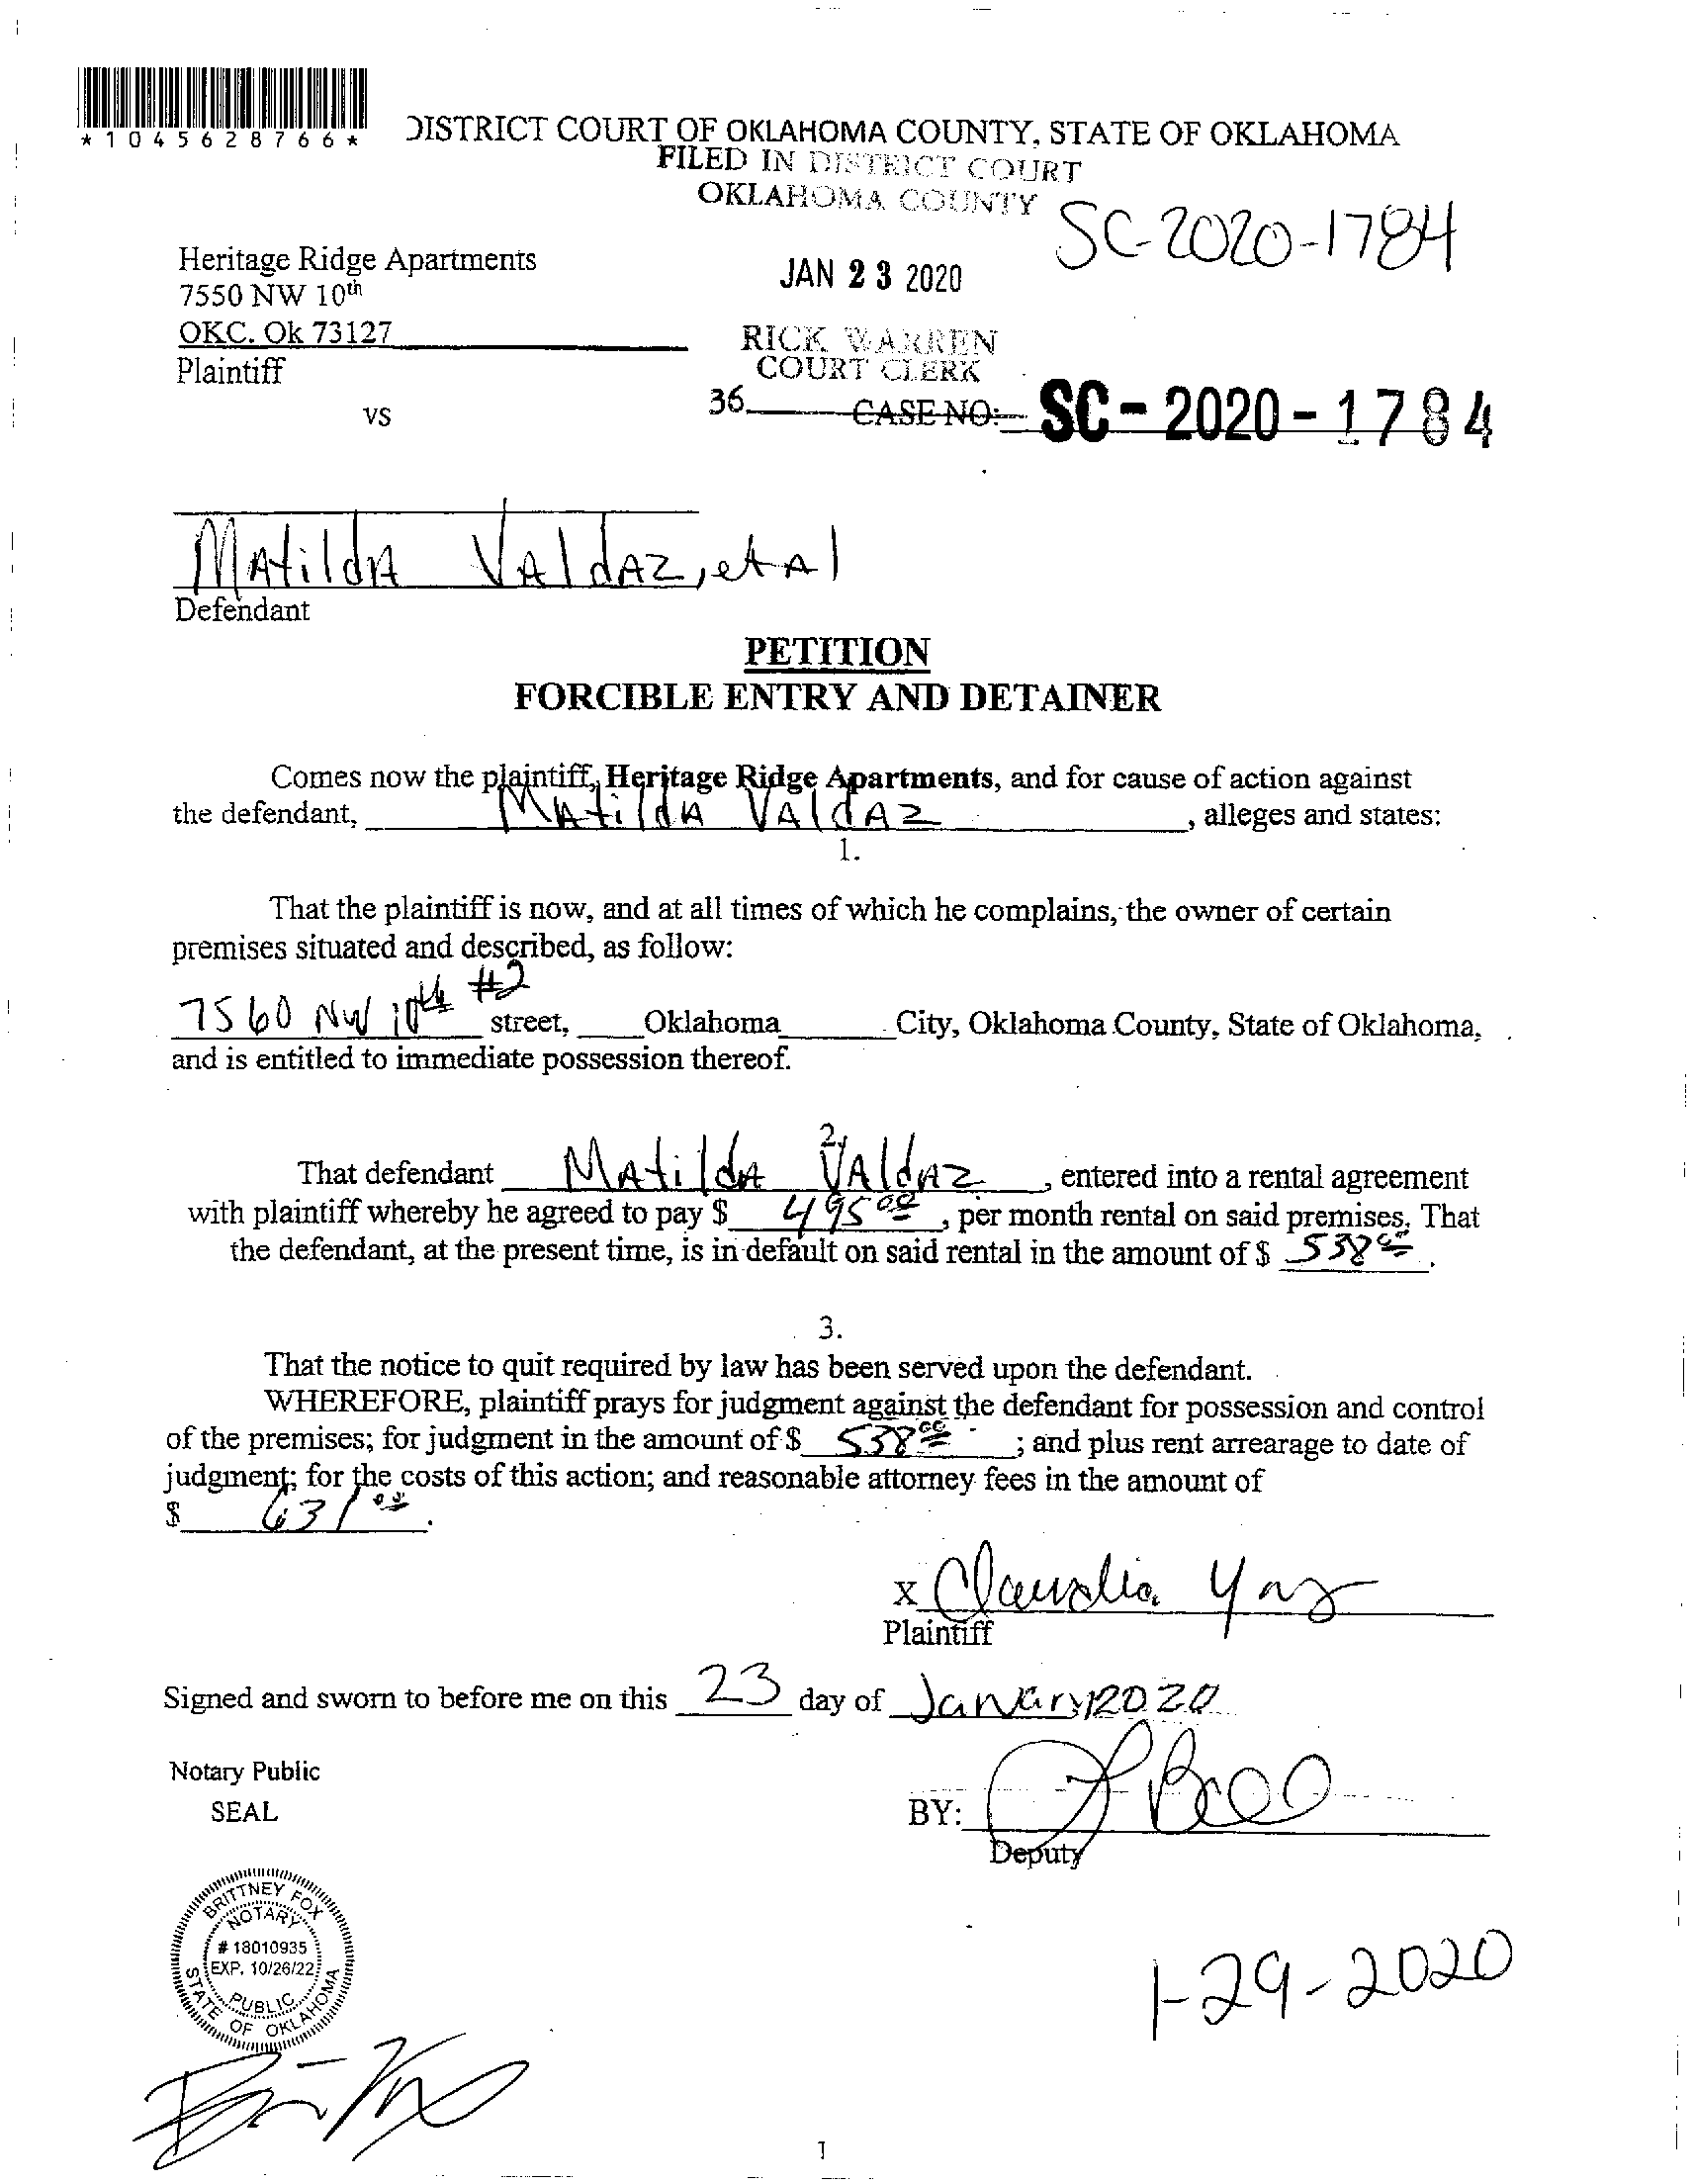 *1045628766*
DISTRICT COURT OF OKLAHOMA COUNTY, STATE OF OKLAHOMA
FILED IN DISTRICT COURT
OKLAHOMA COUNTY
SC-2020-1784
Heritage Ridge Apartments
7550 NW 10th
OKC. Ok 73127
Plaintiff
JAN 23 2020
RICK WARREN
COURT CLERK
vs
36
CASE NO: SC-2020-1784
Matilda Valdaz, et Al
Defendant
PETITION
FORCIBLE ENTRY AND DETAINER
Comes now the plaintiff, Heritage Ridge Apartments, and for cause of action against
the defendant, Matilda Valdaz, alleges and states:
1.
That the plaintiff is now, and at all times of which he complains, the owner of certain
premises situated and described, as follow:
7560 NW 10th #2 street, Oklahoma City, Oklahoma County, State of Oklahoma,
and is entitled to immediate possession thereof.
2.
That defendant Matilda Valdaz, entered into a rental agreement
with plaintiff whereby he agreed to pay $ 495 00, per month rental on said premises. That
the defendant, at the present time, is in default on said rental in the amount of $ 538 00.
3.
That the notice to quit required by law has been served upon the defendant.
WHEREFORE, plaintiff prays for judgment against the defendant for possession and control
of the premises; for judgment in the amount of $ 538 00; and plus rent arrearage to date of
judgment; for the costs of this action; and reasonable attorney fees in the amount of
$ 631 00.
X Claudia
Plaintiff
Signed and sworn to before me on this 23 day of January 2020
Notary Public
SEAL
BY:
Deputy
BRITTNEY FOX
NOTARY
# 18010935
EXP. 10/26/22
PUBLIC
STATE OF OKLAHOMA
1-29-2020
1